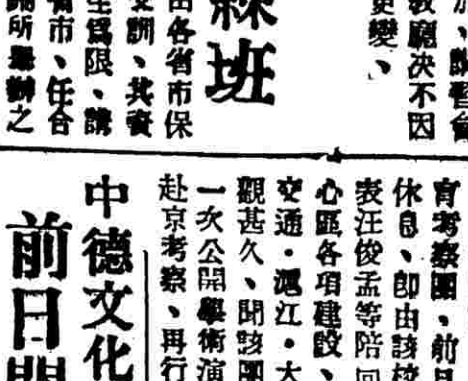 教廳决不因
更變、
練班
由各省市保
訓、其資
生爲限、講
省市、任合
所舉辦之
育考察團、前日
休息、卽由該校
表汪俊孟等陪回
心區各項建設、
交通・滬江・大
觀甚久、聞該團
一次公開學術演
赴京考察、再行
中德文化
前日開